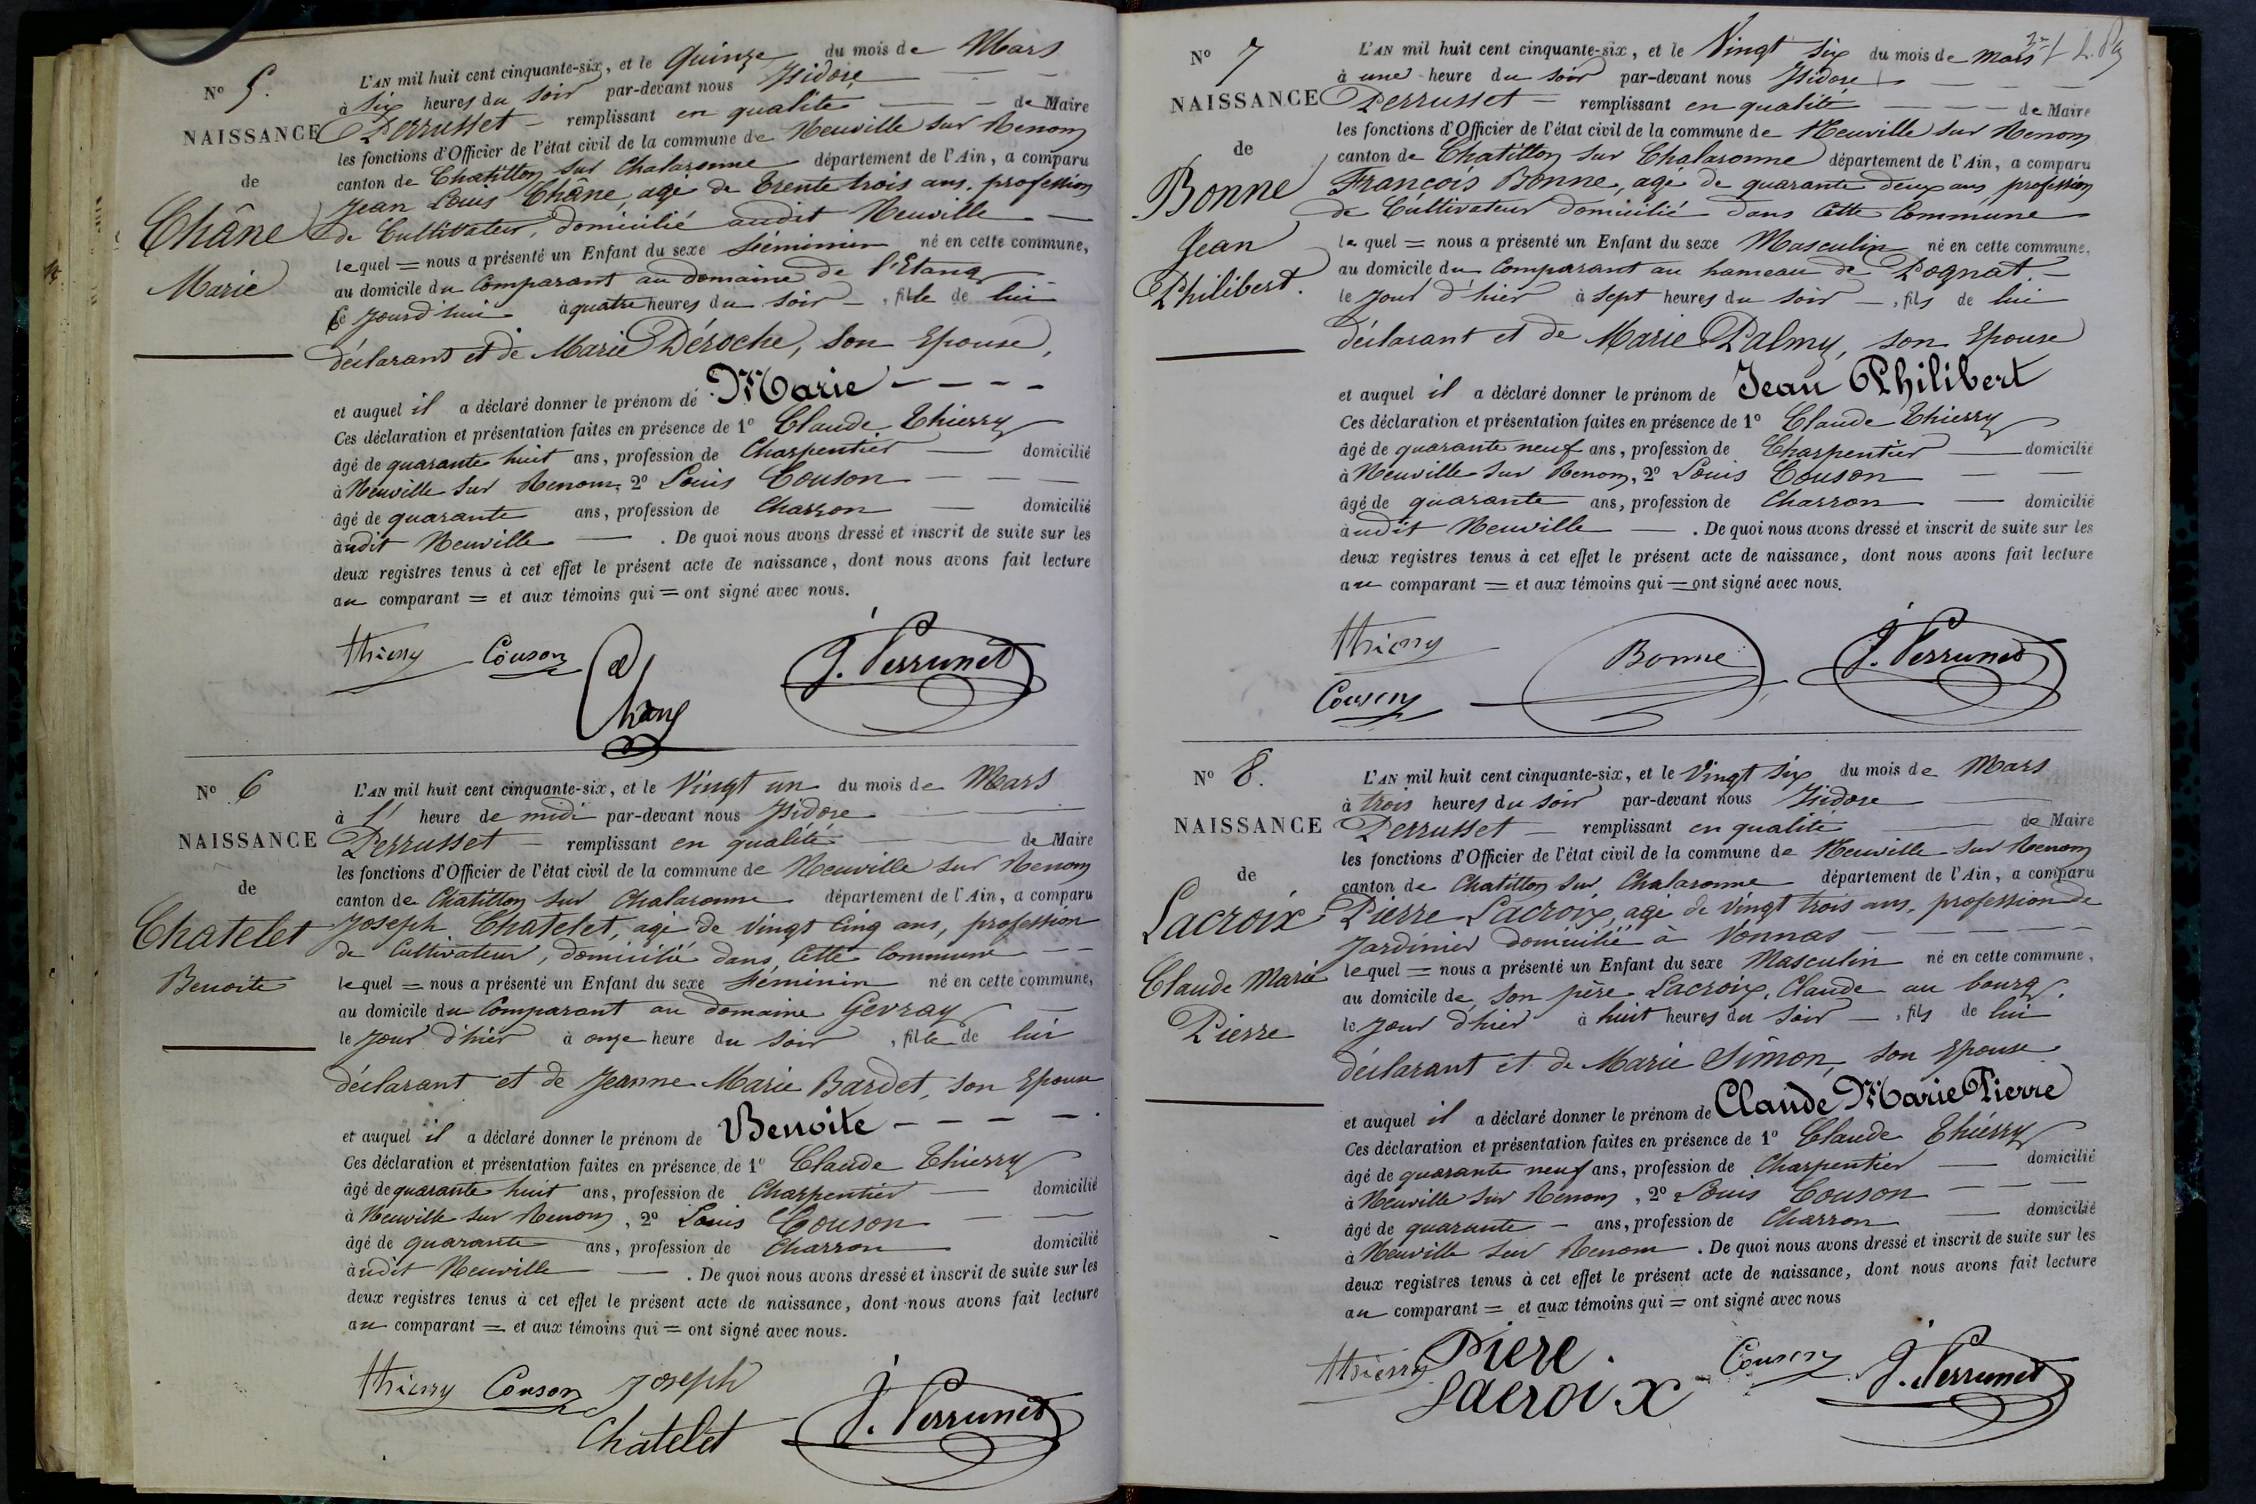 N° 5.
NAISSANCE
de
Châne
Marie
L'AN mil huit cent cinquante-six, et le Quinze du mois de Mars
à six heures du soir par-devant nous Isidore
Perrusset remplissant en qualité de Maire
les fonctions d'Officier de l'état civil de la commune de Neuville sur Renom
canton de Chatillon sur Chalaronne département de l'Ain, a comparu
Jean Louis Châne, agé de trente trois ans, profession
de Cultivateur, domicilié audit Neuville
lequel = nous a présenté un Enfant du sexe féminin né en cette commune,
au domicile du Comparant au domaine de l'Etang
ce jourd'hui à quatre heures du soir, fille de lui
déclarant et de Marie Déroche, son Epouse,
et auquel il a déclaré donner le prénom de Marie
Ces déclaration et présentation faites en présence de 1° Claude Thierry
âgé de quarante huit ans, profession de Charpentier domicilié
à Neuville sur Renom, 2° Louis Couson
âgé de quarante ans, profession de Charron domicilié
audit Neuville. De quoi nous avons dressé et inscrit de suite sur les
deux registres tenus à cet effet le présent acte de naissance, dont nous avons fait lecture
au comparant = et aux témoins qui = ont signé avec nous.
thierry Couson J. Perrusset
N° 6
NAISSANCE
de
Chatelet
Benoite
L'AN mil huit cent cinquante-six, et le Vingt un du mois de Mars
à 1 heure de midi par-devant nous Isidore
Perrusset remplissant en qualité de Maire
les fonctions d'Officier de l'état civil de la commune de Neuville sur Renom
canton de Chatillon sur Chalaronne département de l'Ain, a comparu
Joseph Chatelet, agé de vingt cinq ans, profession
de Cultivateur, domicilié dans cette Commune
lequel = nous a présenté un Enfant du sexe féminin né en cette commune,
au domicile du Comparant au domaine Gevray
le jour d'hier à onze heure du soir, fille de lui
déclarant et de Jeanne Marie Bardet, son Epouse
et auquel il a déclaré donner le prénom de Benoite
Ces déclaration et présentation faites en présence de 1° Claude Thierry
âgé de quarante huit ans, profession de Charpentier domicilié
à Neuville sur Renom, 2° Louis Couson
âgé de quarante ans, profession de Charron domicilié
audit Neuville. De quoi nous avons dressé et inscrit de suite sur les
deux registres tenus à cet effet le présent acte de naissance, dont nous avons fait lecture
au comparant = et aux témoins qui = ont signé avec nous.
thierry Couson Joseph
Chatelet J. Perrusset
N° 7
NAISSANCE
de
Bonne
Jean
Philibert.
L'AN mil huit cent cinquante-six, et le Vingt six du mois de mars
à une heure du soir par-devant nous Isidore
Perrusset remplissant en qualité de Maire
les fonctions d'Officier de l'état civil de la commune de Neuville sur Renom
canton de Chatillon sur Chalaronne département de l'Ain, a comparu
François Bonne, agé de quarante deux ans profession
de Cultivateur domicilié dans cette Commune
lequel = nous a présenté un Enfant du sexe Masculin né en cette commune,
au domicile du Comparant au hameau de Pognat.
le jour d'hier à sept heures du soir, fils de lui
déclarant et de Marie Palmy, son Epouse
et auquel il a déclaré donner le prénom de Jean Philibert
Ces déclaration et présentation faites en présence de 1° Claude Thierry
âgé de quarante neuf ans, profession de Charpentier domicilié
à Neuville sur Renom, 2° Louis Couson
âgé de quarante ans, profession de Charron domicilié
audit Neuville. De quoi nous avons dressé et inscrit de suite sur les
deux registres tenus à cet effet le présent acte de naissance, dont nous avons fait lecture
au comparant = et aux témoins qui = ont signé avec nous.
thierry Bonne J. Perrusset
Couson
N° 8.
NAISSANCE
de
Lacroix
Claude Marie
Pierre
L'AN mil huit cent cinquante-six, et le Vingt six du mois de Mars
à trois heures du soir par-devant nous Isidore
Perrusset remplissant en qualité de Maire
les fonctions d'Officier de l'état civil de la commune de Neuville sur Renom
canton de Chatillon sur Chalaronne département de l'Ain, a comparu
Pierre Lacroix, agé de vingt trois ans, profession de
Jardinier domicilié à Vonnas
lequel = nous a présenté un Enfant du sexe Masculin né en cette commune,
au domicile de son père Lacroix, Claude au bourg,
le jour d'hier à huit heures du soir, fils de lui
déclarant et de Marie Simon, son Epouse
et auquel il a déclaré donner le prénom de Claude Marie Pierre
Ces déclaration et présentation faites en présence de 1° Claude Thierry
âgé de quarante neuf ans, profession de Charpentier domicilié
à Neuville sur Renom, 2° Louis Couson
âgé de quarante ans, profession de Charron domicilié
à Neuville sur Renom. De quoi nous avons dressé et inscrit de suite sur les
deux registres tenus à cet effet le présent acte de naissance, dont nous avons fait lecture
au comparant = et aux témoins qui = ont signé avec nous
thierry Piere Couson J. Perrusset
Lacroix